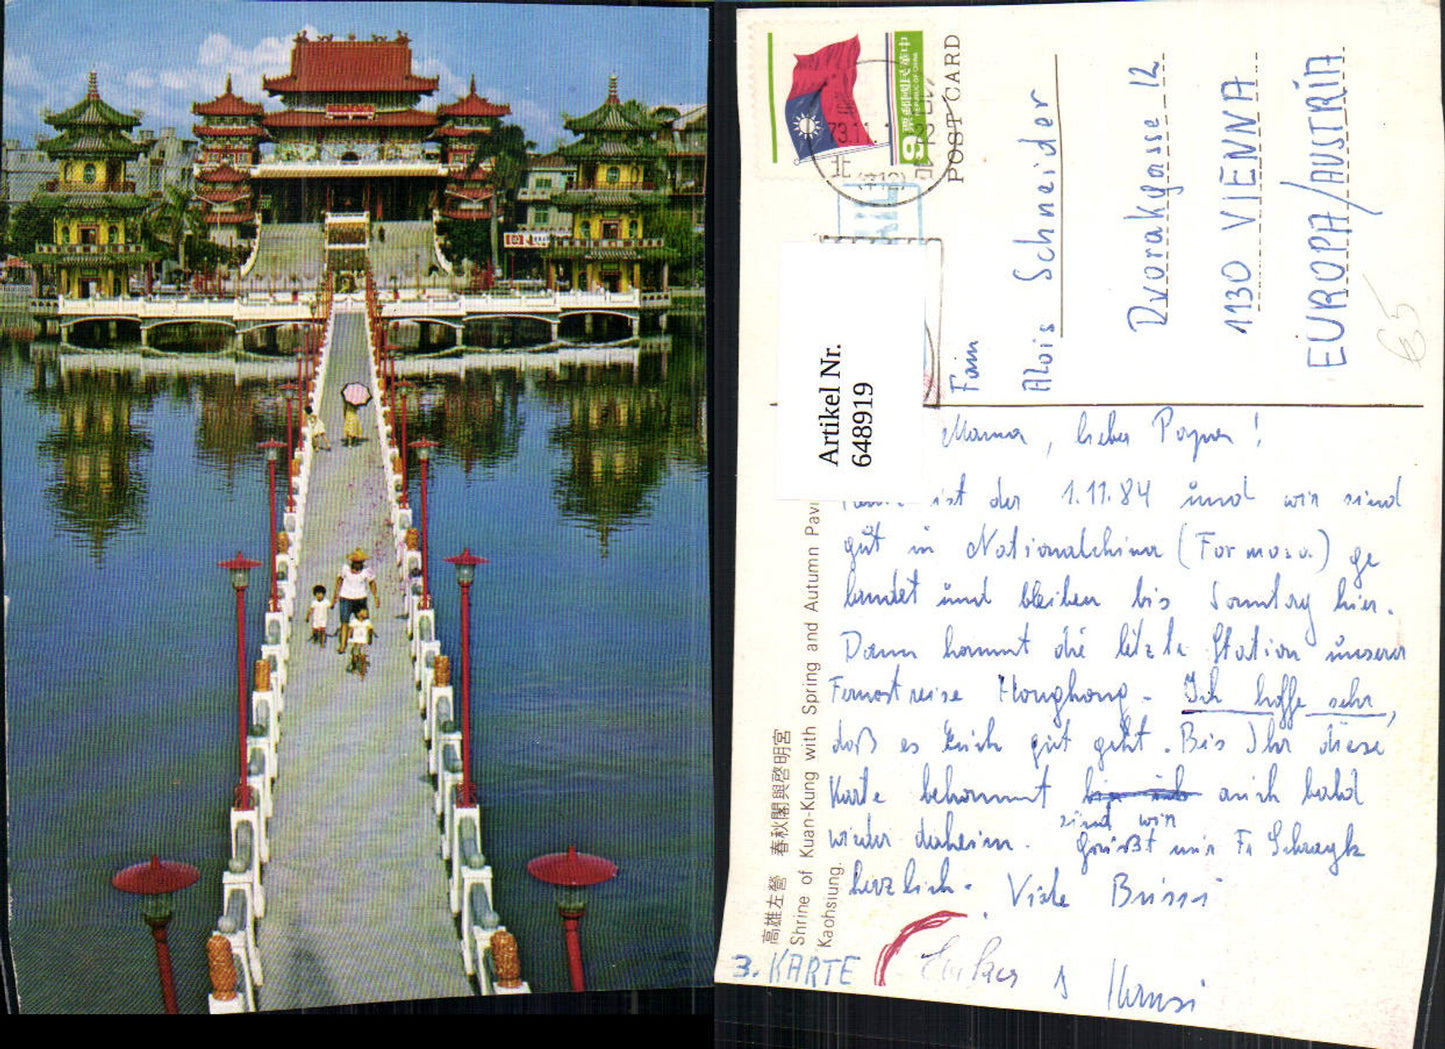 中華民國郵票
REPUBLIC OF CHINA
9
73.11.
北
POST CARD
Fam
Alois Schneider
Dvorakgasse 12
1130 VIENNA
EUROPA/AUSTRIA
€5
Artikel Nr.
648919
Mama, lieber Papa!
ist der 1.11.84 und wir sind
gut in Nationalchina (Formosa) ge
landet und bleiben bis Sonntag hier.
Dann kommt die letzte Station unserer
Fernostreise Hongkong - Ich hoffe sehr,
daß es Euch gut geht. Bis Ihr diese
Karte bekommt sind wir auch bald
wieder daheim. Grüßt mir Fr
herzlich. Viele Bussi
Hansi
3. KARTE
高雄左營 春秋閣與啓明宮
Shrine of Kuan-Kung with Spring and Autumn Pavi
Kaohsiung.